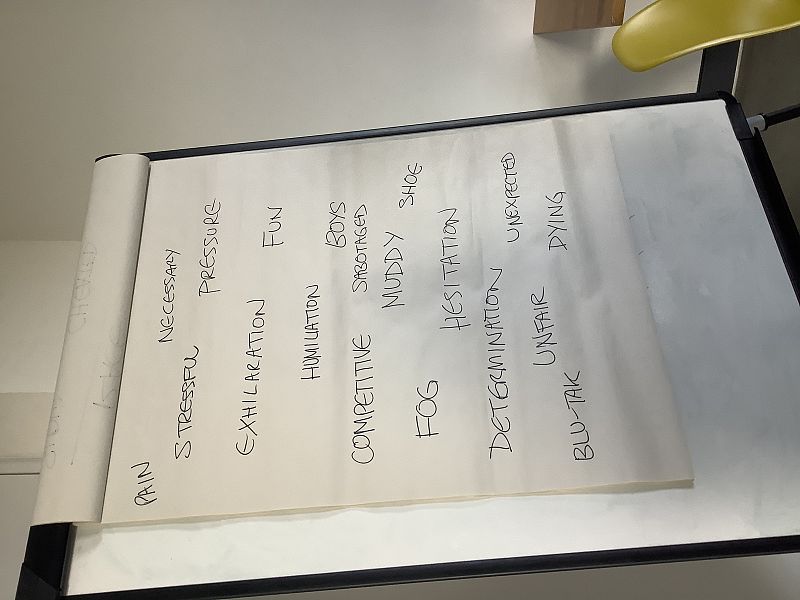 PAIN
STRESSFUL NECESSARY
PRESSURE
EXHILARATION FUN
HUMILIATION BOYS
COMPETITIVE SABOTAGED
MUDDY SHOE
FOG HESITATION
DETERMINATION UNEXPECTED
UNFAIR DYING
BLU-TAK